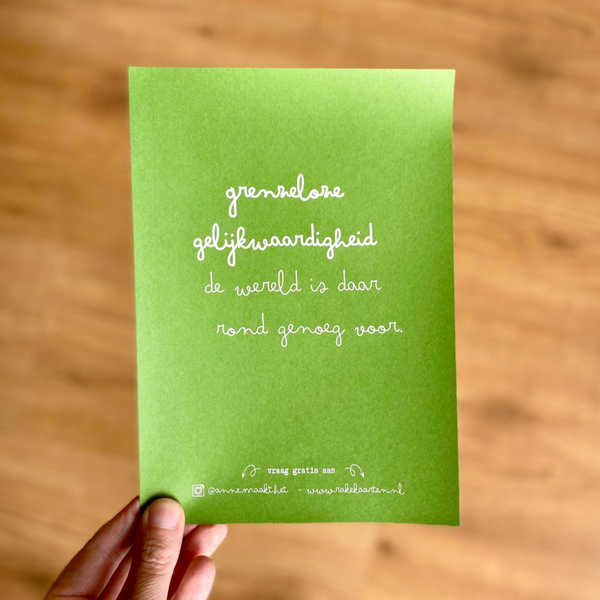 grenzeloze
gelijkwaardigheid
de wereld is daar
rond genoeg voor.
vraag gratis aan
@anne.maakt.het - www.rakekaarten.nl